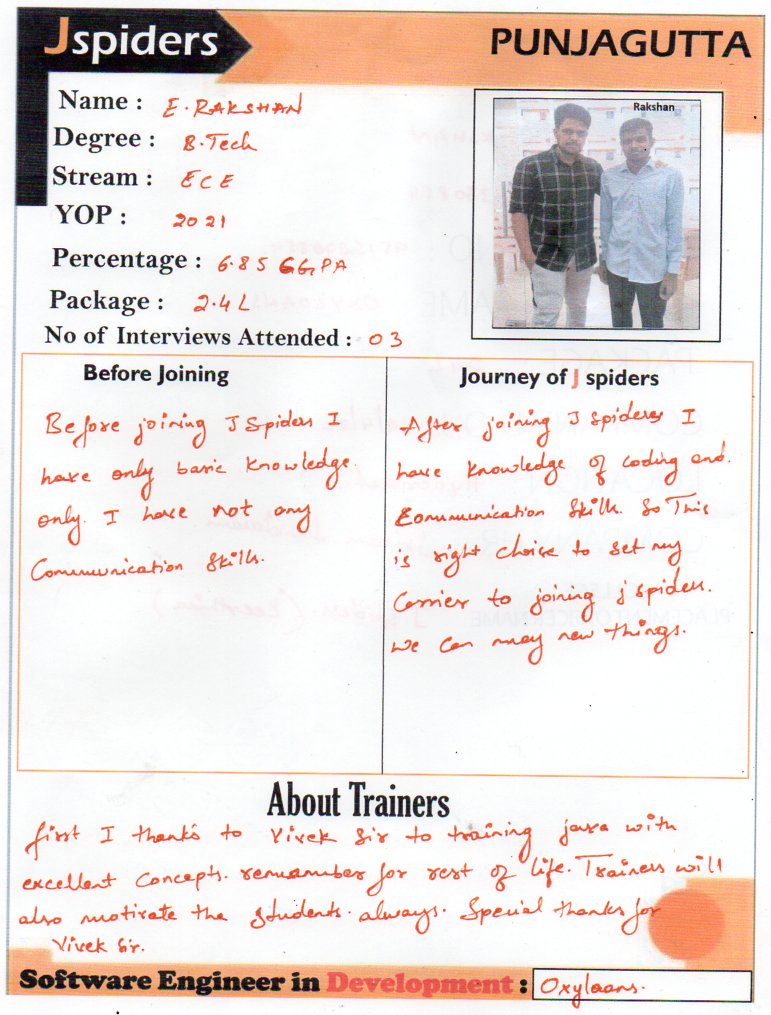 Jspiders
PUNJAGUTTA
Name : E. RAKSHAN
Degree : B.Tech
Stream : ECE
YOP : 2021
Percentage : 6.85 CGPA
Package : 2.4L
No of Interviews Attended : 03
Rakshan
Before Joining
Before joining J Spiders I
have only basic knowledge.
only. I have not any
Communication skills.
Journey of J spiders
After joining J spiders I
have knowledge of coding and.
Communication skills. So This
is right choice to set my
Carrier to joining j spiders.
we can many new things.
About Trainers
first I thanks to Vivek Sir to training java with
excellent concepts. remember for rest of life. Trainers will
also motivate the students. always. Special thanks for
Vivek Sir.
Software Engineer in Development : Oxyloans.